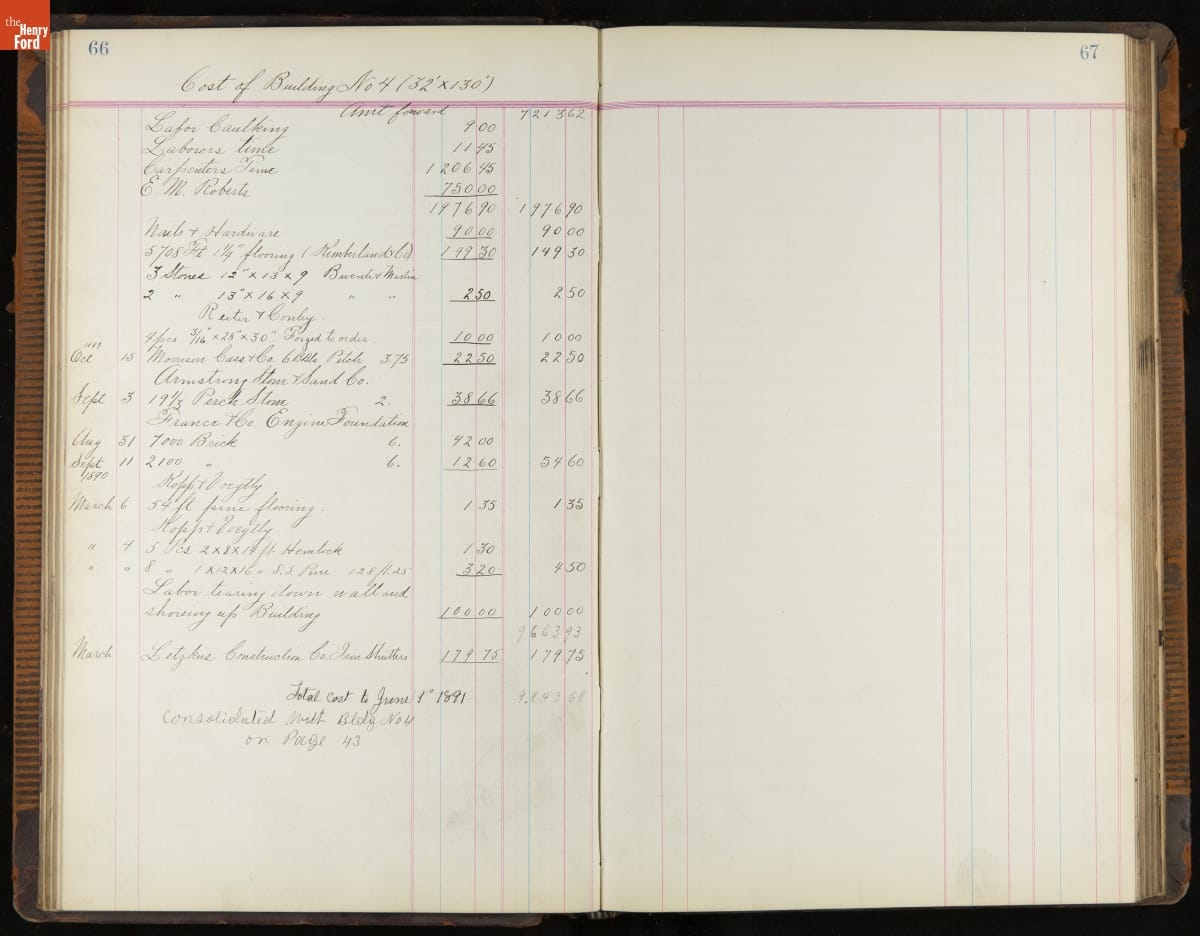 the Henry Ford
66
67
Cost of Building No 4 (32' x 130')
Amt forward 7213 62
Labor Caulking 9 00
Laborers time 11 45
Carpenters Time 1206 45
E. M. Roberts 750 00
1976 90 1976 90
Nails & Hardware 90 00 90 00
5708 Ft 1 1/4" flooring (Kimberland & Co) 149 30 149 30
3 Stones 12" x 13 x 9 & Martin
2 " 13" x 16 x 9 " " 2 50 2 50
Reiter & Conley.
4 pcs 3/16" x 28" x 30" Forged to order. 10 00 10 00
1889
Oct 15 Morrison Cass & Co. 6 Bbls Pitch 3.75 22 50 22 50
Armstrong Stone & Sand Co.
Sept 3 19 1/3 Perch Stone 2. 38 66 38 66
France & Co. Engine Foundation
Aug 31 7000 Brick 6. 42 00
Sept 11 2100 " 6. 12 60 54 60
1890
Kopp & Voegtly
March 6 54 ft pine flooring. 1 35 1 35
Kopp & Voegtly
" 4 5 Pcs 2 x 8 x 14 ft. Hemlock 1 30
" " 8 " 1 x 12 x 16 " S.S. Pine 128 ft. 25 3 20 4 50
Labor tearing down wall and
shoreing up Building 100 00 100 00
9663 93
March Letzkus Construction Co. Iron Shutters 179 75 179 75
Total cost to June 1st 1891 9.843 68
Consolidated With Bldg No 4
on Page 43